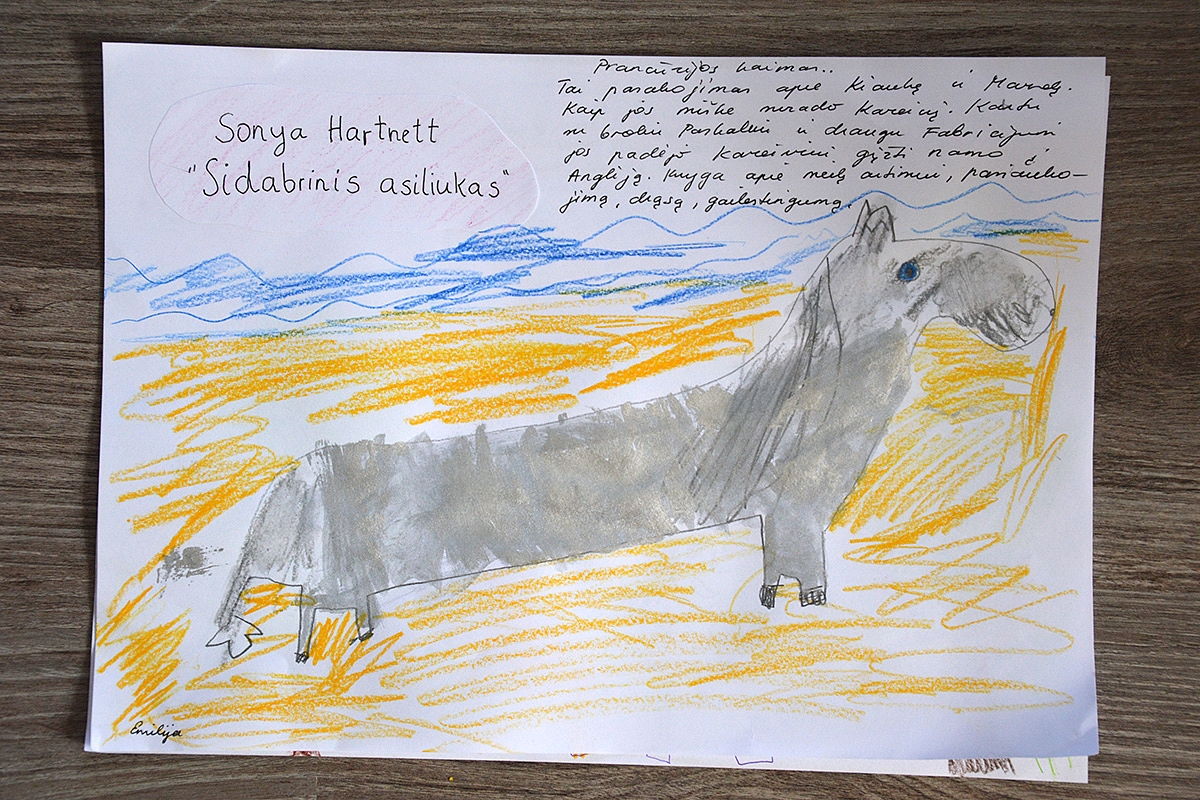 Sonya Hartnett
"Sidabrinis asiliukas"
Prancūzijos kaimas..
Tai pasakojimas apie ir
Kaip jos miške surado kareivį. Kartu
su broliu Paskaliu ir draugu Fabricijumi
jos padėjo kareiviui grįžti namo į
Angliją. Knyga apie meilę artimui, pasiauko-
jimą, drąsą, gailestingumą.
Emilija